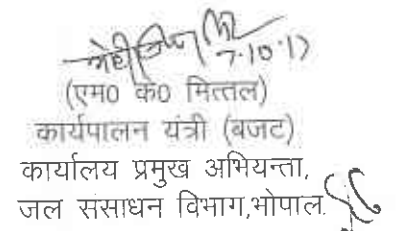 7.10.17
(एम0 के0 मित्तल)
कार्यपालन यंत्री (बजट)
कार्यालय प्रमुख अभियन्ता,
जल संसाधन विभाग,भोपाल.